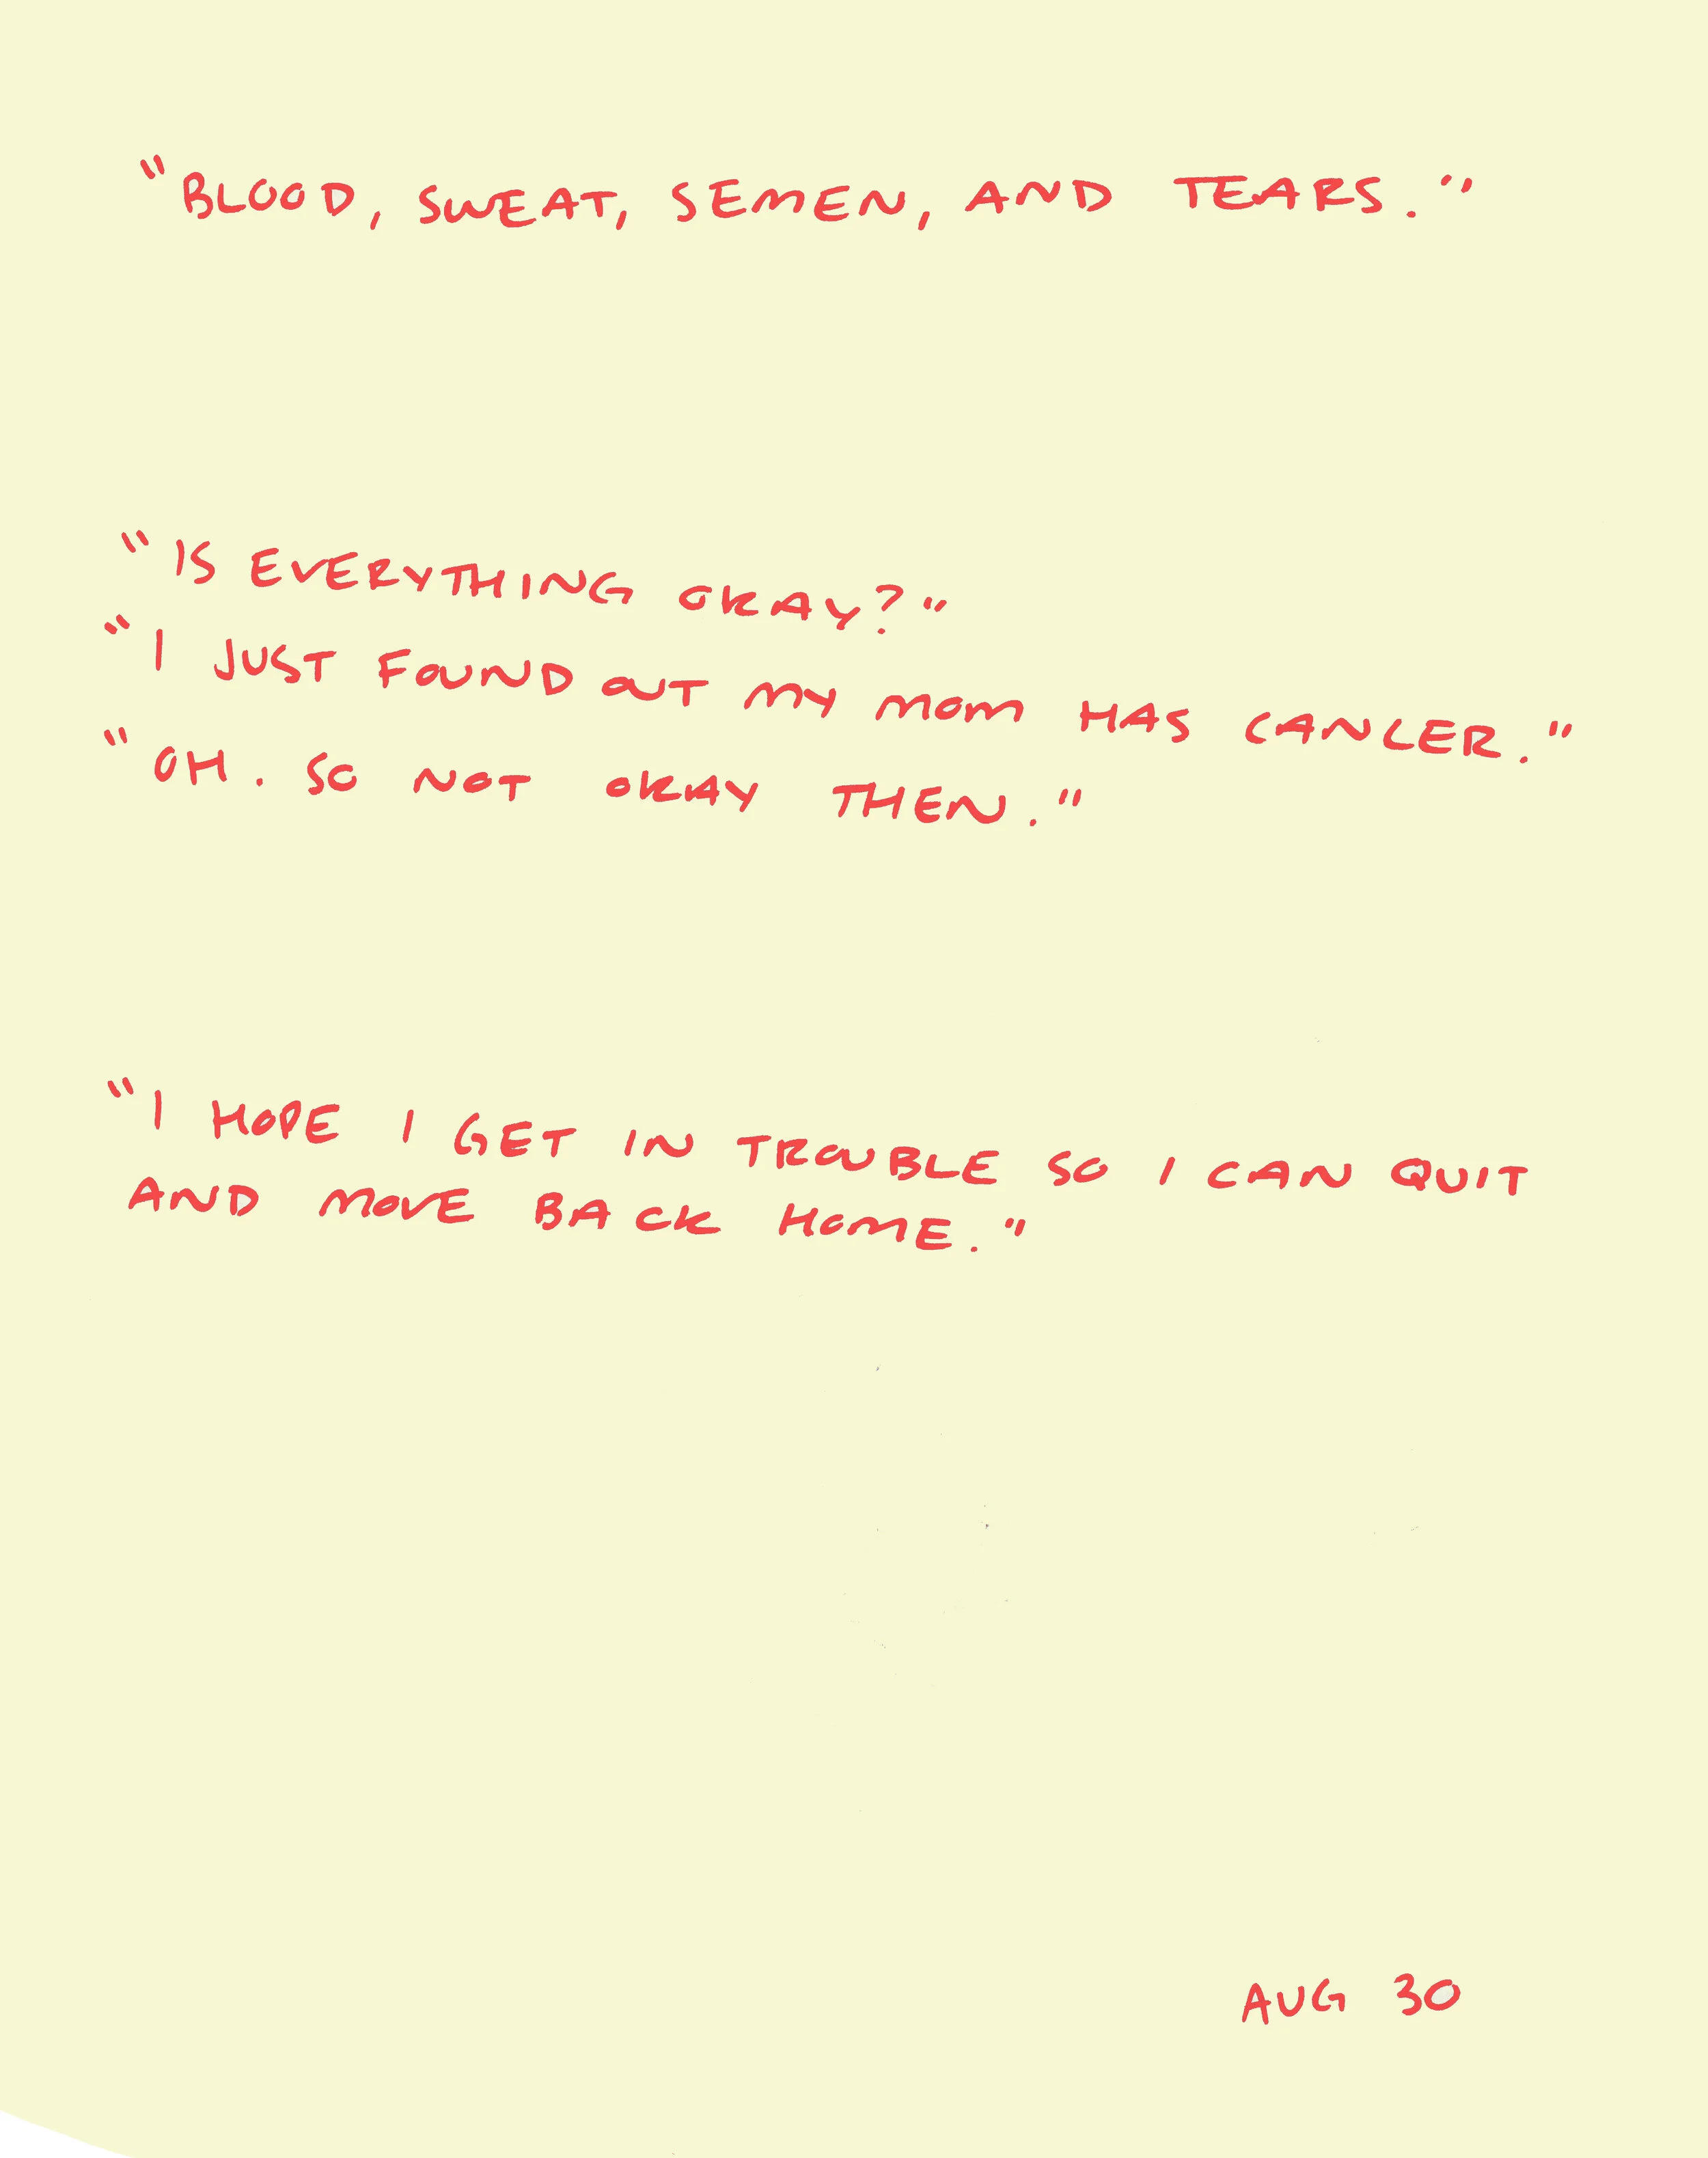 "BLOOD, SWEAT, SEMEN, AND TEARS."
"IS EVERYTHING OKAY?"
"I JUST FOUND OUT MY MOM HAS CANCER."
"OH. SO NOT OKAY THEN."
"I HOPE I GET IN TROUBLE SO I CAN QUIT
AND MOVE BACK HOME."
AUG 30